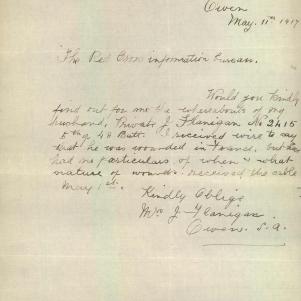 Owen
May. 11th 1917
The Red Cross information Bureau.
Would you kindly
find out for me the whereabouts of my
husband, Private J Flanigan No 2415
5th of 48 Batt. I received wire to say
that he was wounded in France, but has
had no particulars of when & what
nature of wounds. received the cable
May 1st.
Kindly Oblige
Mrs J Flanigan
Owen. S.A.